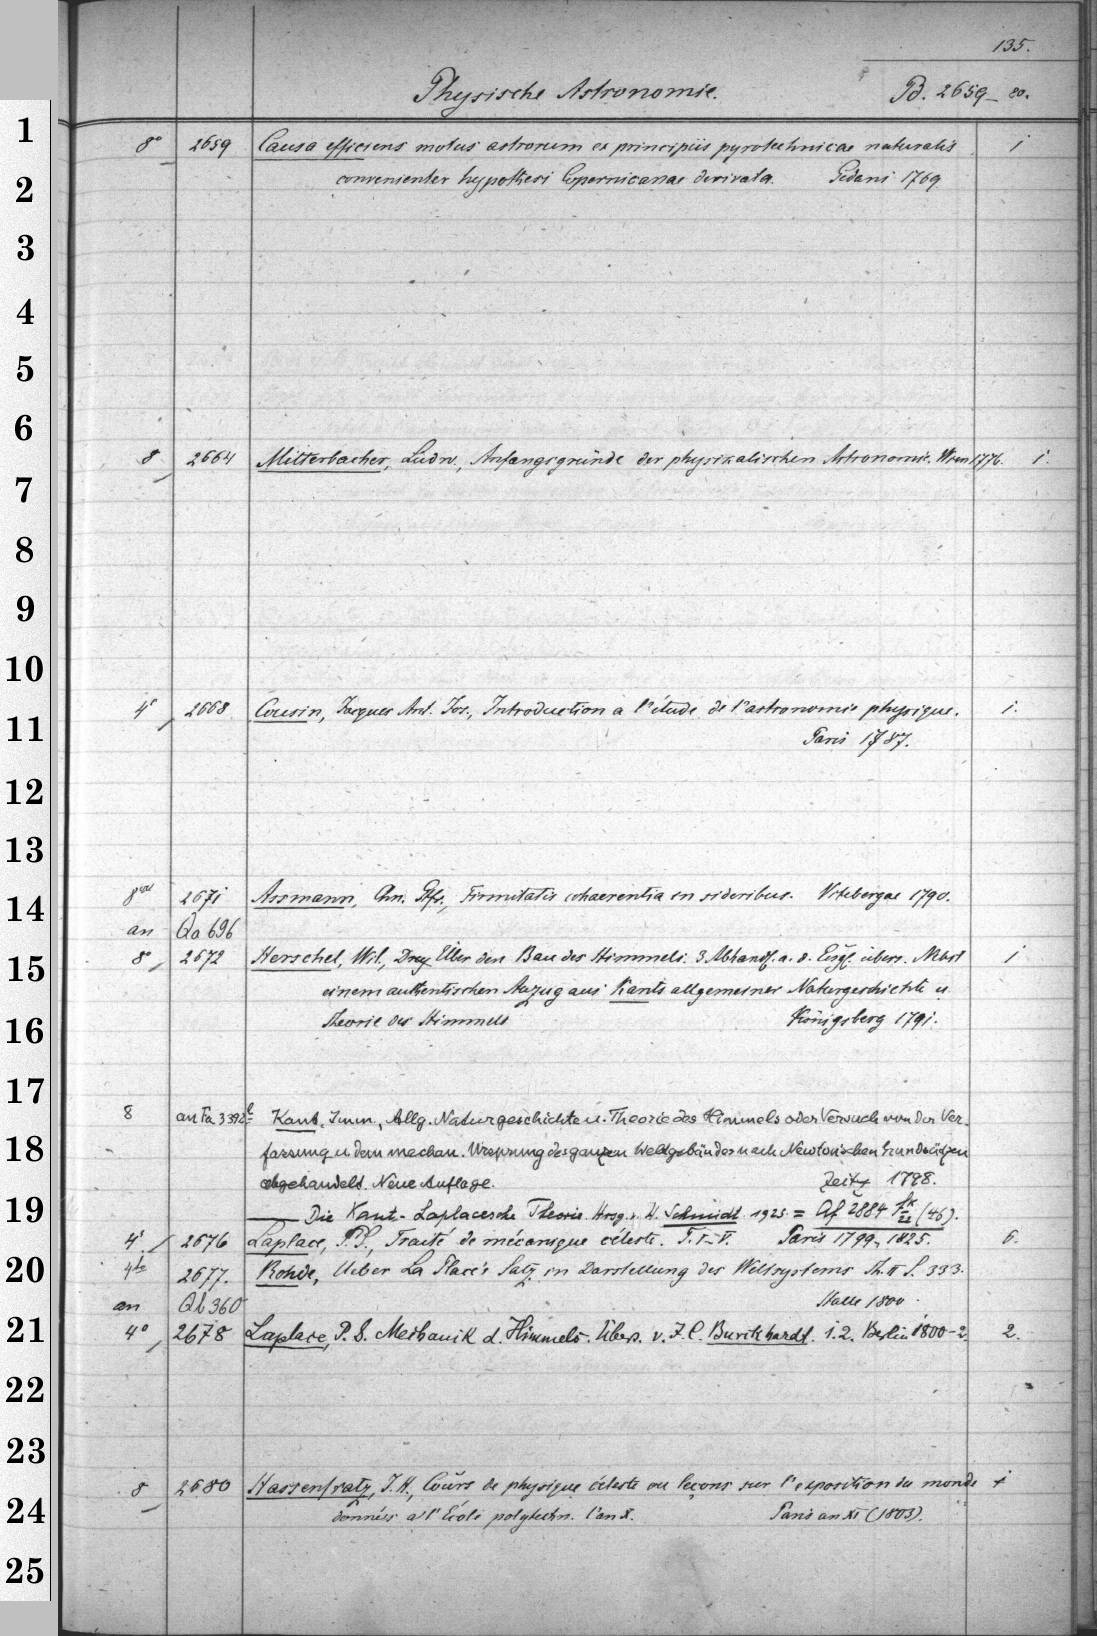 135.
Physische Astronomie. Pd. 2659–80.
1
8° 2659 Causa efficiens motus astrorum ex principiis pyrotechnicae naturalis 1
2
convenienter hypothesi Copernicanae derivata. Gedani 1769.
3
4
5
6
8 2664 Mitterbacher, Ludw., Anfangsgründe der physikalischen Astronomie. Wien 1776. 1.
7
8
9
10
4° 2668 Cousin, Jacques Ant. Jos., Introduction a l'étude de l'astronomie physique. 1.
11
Paris 1787.
12
13
14
8 2671 Assmann, Chn. Gfr., Firmitatis cohaerentia in sideribus. Vitebergae 1790.
an Qa 696
15
8° 2672 Herschel, Wil., Drey Über den Bau des Himmels. 3 Abhandl. a. d. Engl. übers. Nebst 1
einem authentischen Auzug aus Kants allgemeiner Naturgeschichte u.
16
Theorie des Himmels Königsberg 1791.
17
8 an Fa 3392 Kant, Imm., Allg. Naturgeschichte u. Theorie des Himmels oder Versuch von der Ver-
18
fassung u dem mechan. Ursprung des ganzen Weltgebäudes nach Newton'schen Grundsätzen
abgehandelt. Neue Auflage. Zeitz 1798.
19
Die Kant-Laplacesche Theorie. Hrsg. v. H. Schmidt 1925 = Af 2884 (46).
4° 2676 Laplace, P. S., Traité de mécanique céleste. T. I–V. Paris 1799–1825. 6.
20
2677. Rohde, Ueber La Place's Satz in Darstellung des Weltsystems Th. II S. 333.
an Qb 360 Halle 1800.
21
4° 2678 Laplace, P. S. Mechanik d. Himmels. Übers. v. J. C. Burckhardt. 1.2. Berlin 1800–2 2.
22
23
8 2680 Hassenfratz, J. H., Cours de physique céleste ou leçons sur l'exposition du monde
24
données a l'École polytechn. l'an X. Paris an XI (1803).
25